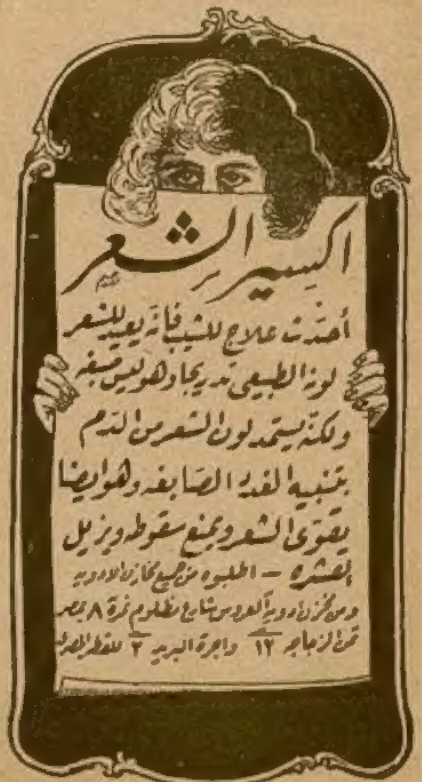 اكسير الشعر
أحدث علاج للشيب فانه يعيد للشعر
لونه الطبيعى تدريجا وهو ليس صبغه
ولكنه يستمد لون الشعر من الدم
بتنبيه الغدد الصابغه وهو ايضا
يقوى الشعر ويمنع سقوطه ويزيل
القشره – اطلبوه من جميع مخازن الادويه
ومن مخزن ادوية العروس شارع مظلوم نمرة ٨ بمصر
ثمن الزجاجه ١٢ واجرة البريد ٢ للقطر المصرى